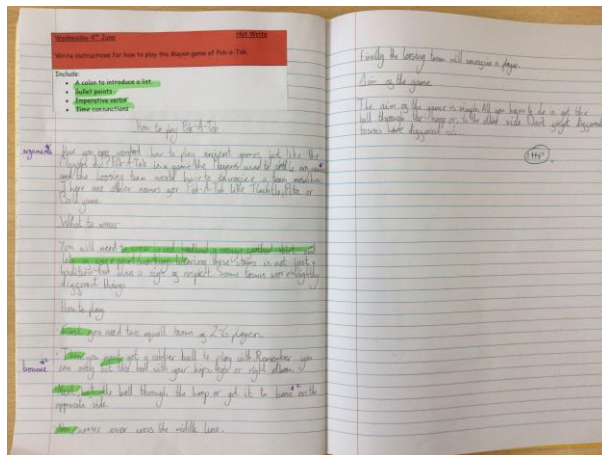 Wednesday 4th June
Hot Write
Write instructions for how to play the Mayan game of Pok-a-Tok.
Include:
• A colon to introduce a list
• Bullet points
• Imperative verbs
• Time conjunctions
How to play Pok-A-Tok
argument
Have you ever wonderd how to play ancient games just like the
Mayans did? Pok-A-Tok is a game the Mayans used to settle
and the loosing team would have to a team member.
There are other names for Pok-A-Tok like Tlachtli, Pitz or
Ball game.
What to wear
You will need
these items is not just a
tradition but also a sign of respect. Some teams wore slightly
different things.
How to play
First, you need two equal teams of 2-6 players.
Then you must get a rubber ball to play with. Remember you
can only hit the ball with your hips, legs or right elbow.
bounce
Next, the ball through the hoop or get it to on the
opposite side.
never ever cross the middle line.
Finally the loosing team will a player.
Aim of the game
The aim of the game is simple. All you have to do is get the
ball through the hoop or to the other side. Don't forget different
teams have different
1HP